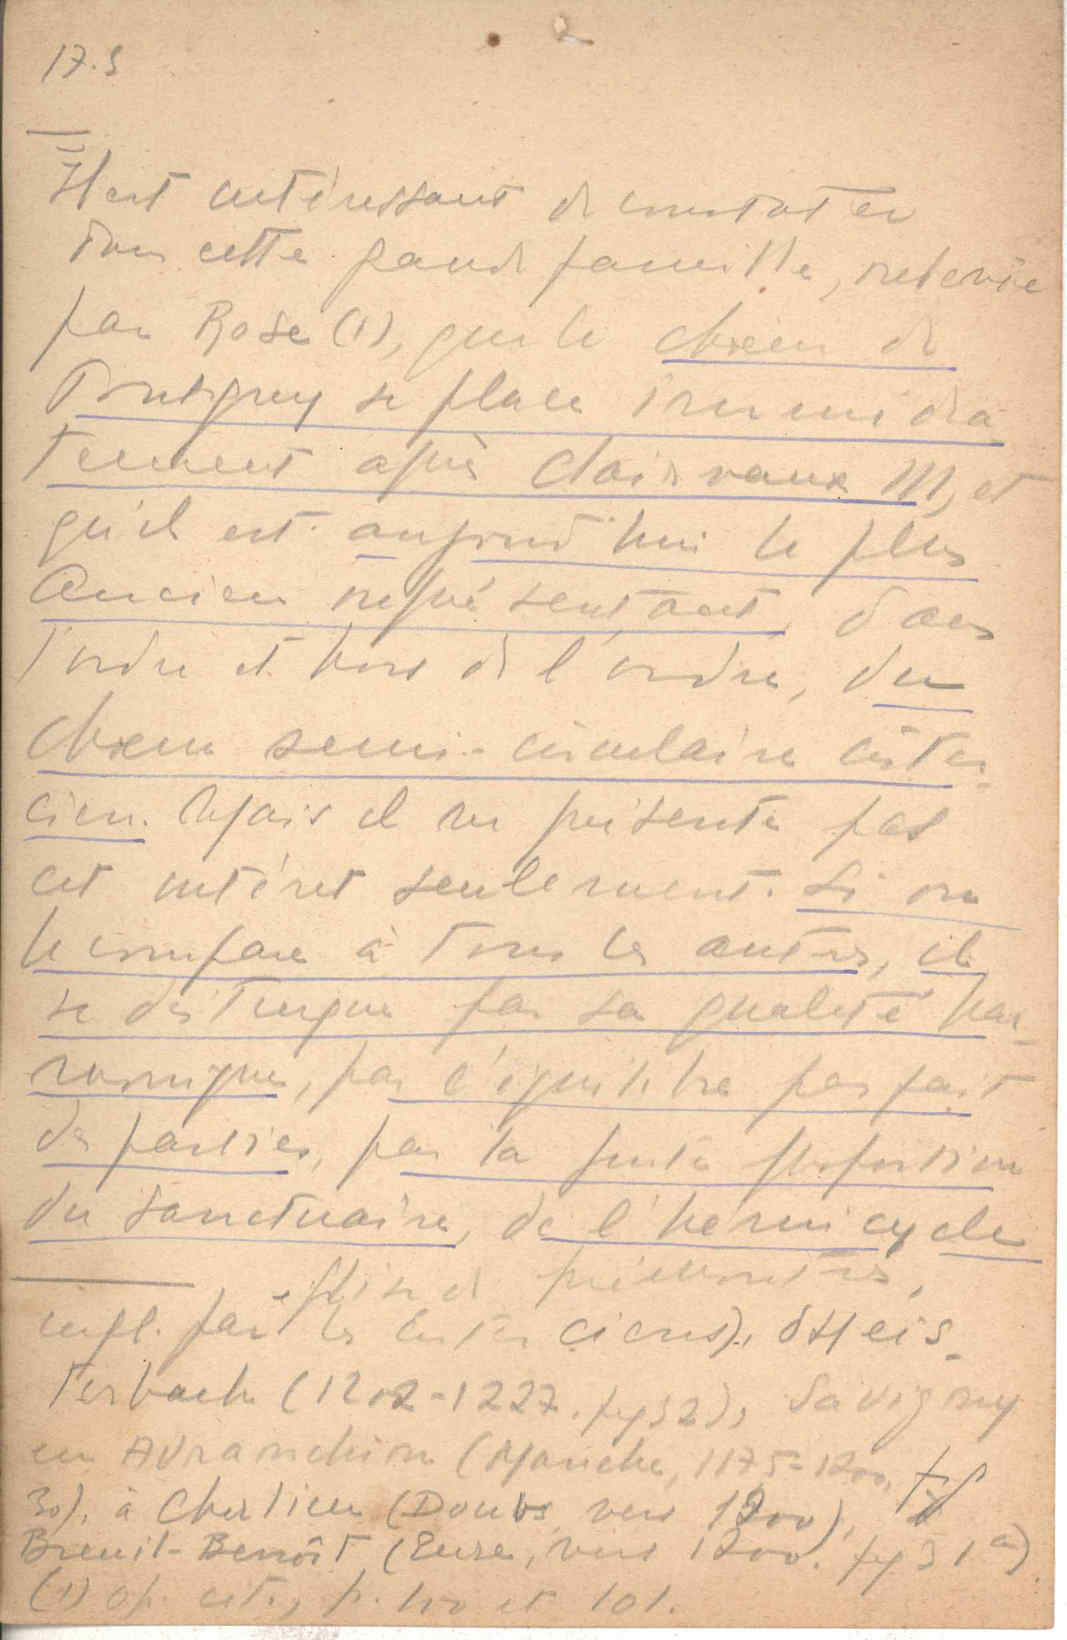 17.S
Il est intéressant de constater
dans cette grande famille, relevée
par Rose (1), que le chœur de
Pontigny se place immédia-
tement après Clairvaux III, et
qu'il est aujourd'hui le plus
ancien représentant, dans
l'ordre et hors de l'ordre, du
chœur semi-circulaire cister-
cien. Mais il ne présente pas
cet intéret seulement. Si on
le compare à tous les autres, il
se distingue par sa qualité har-
monique, par l'équilibre parfait
des parties, par la juste proportion
du sanctuaire, de l'hémicycle
église de prémontrés,
infl. par les cisterciens), d'Heis-
terbach (1202-1227. fig 32), Savigny
en Avranchin (Manche, 1175-1200, fig
30), à Cherlieu (Doubs vers 1200),
Breuil-Benoît (Eure, vers 1200. fig 31a)
(1) op. cit., p. 100 et 101.